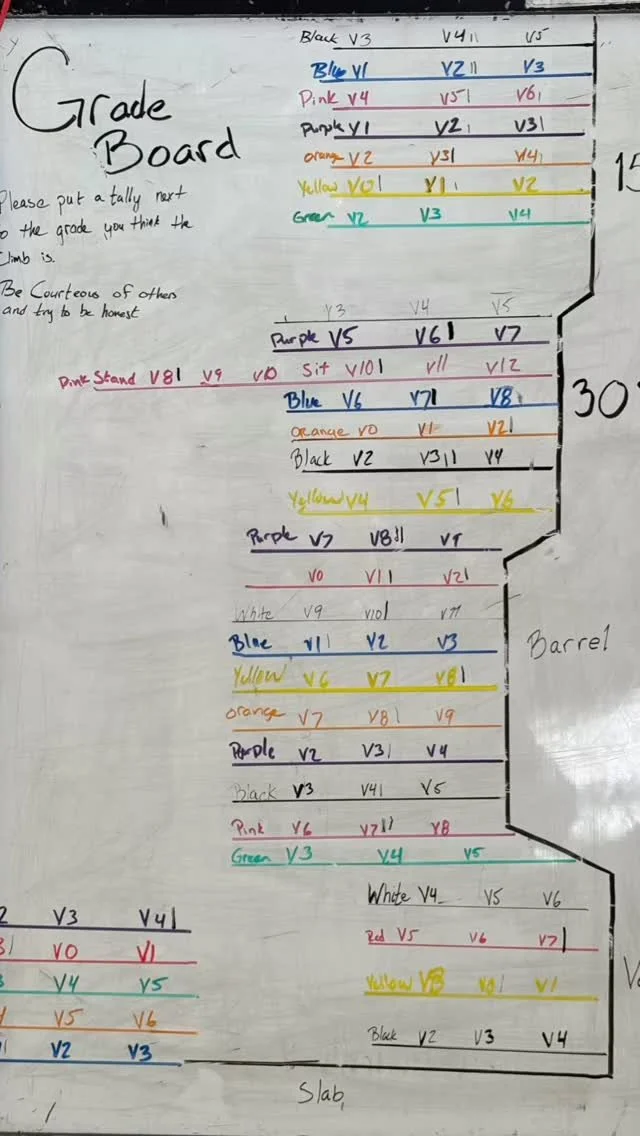 Grade
Board
Please put a tally next
to the grade you think the
climb is.
Be Courteous of others
and try to be honest
Black V3 V4 || V5
Blue V1 V2 || V3
Pink V4 V5 | V6 |
Purple V1 V2 | V3 |
Orange V2 V3 | V4 |
Yellow V0 | V1 | V2
Green V2 V3 V4
15
V3 V4 V5
Purple V5 V6 | V7
Pink Stand V8 | V9 V10 Sit V10 | V11 V12
Blue V6 V7 | V8 |
Orange V0 V1 V2 |
Black V2 V3 || V4
Yellow V4 V5 | V6
30°
Purple V7 V8 || V9
V0 V1 | V2 |
White V9 V10 | V11
Blue V1 | V2 V3
Yellow V6 V7 V8 |
Orange V7 V8 | V9
Purple V2 V3 | V4
Black V3 V4 | V5
Pink V6 V7 || V8
Green V3 V4 V5
Barrel
White V4 V5 V6
Red V5 V6 V7 |
Yellow VB V0 | V1
Black V2 V3 V4
V
2 V3 V4 |
B | V0 V1
3 V4 V5
4 V5 V6
1 | V2 V3
Slab